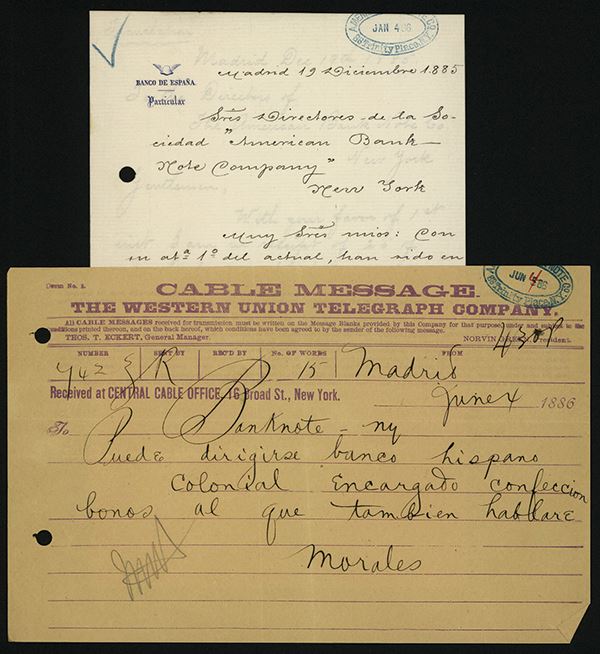 JAN 4 86
86 Trinity Place N.Y.
Madrid 19 Diciembre 1885
BANCO DE ESPAÑA.
Particular
Sres Directores de la So-
ciedad "American Bank-
Note Company"
New York
Muy Sres mios: Con
atª 1º del actual, han sido en
CABLE MESSAGE.
THE WESTERN UNION TELEGRAPH COMPANY.
All CABLE MESSAGES received for transmission must be written on the Message Blanks provided by this Company for that purpose, under and subject to the
conditions printed thereon, and on the back hereof, which conditions have been agreed to by the sender of the following message.
THOS. T. ECKERT, General Manager.
NORVIN GREEN, President.
JUN 4 86
NUMBER SENT BY REC'D BY No. OF WORDS FROM
742 15 Madrid
Received at CENTRAL CABLE OFFICE, 16 Broad St., New York.
June 4 1886
To Banknote - ny
Puede dirigirse banco hispano
Colonial Encargado confeccion
bonos al que tambien hablare
Morales